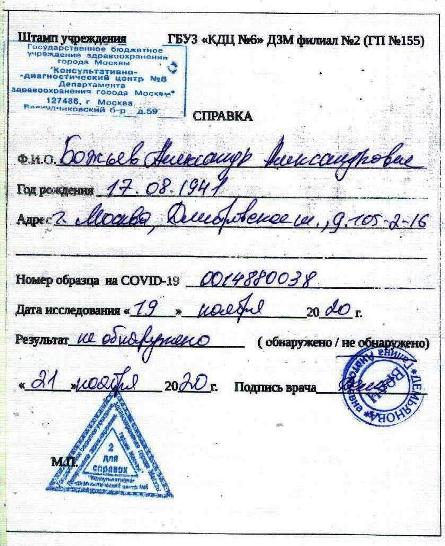 Штамп учреждения ГБУЗ «КДЦ №6» ДЗМ филиал №2 (ГП №155)
Государственное бюджетное
учреждение здравоохранения
города Москвы
"Консультативно-
-диагностический центр №6
Департамента
здравоохранения города Москвы"
127486, г. Москва
Бескудниковский б-р д.59
СПРАВКА
Ф.И.О. Божьев Александр Александрович
Год рождения 17.08.1941
Адрес г. Москва, Дмитровское ш., д. 105-2-16
Номер образца на COVID-19 0014880038
Дата исследования « 19 » ноября 20 20 г.
Результат не обнаружено ( обнаружено / не обнаружено)
« 21 » ноября 20 20 г. Подпись врача
ВРАЧ
ДЕМЬЯНОВА
М.П.
2
для
справок